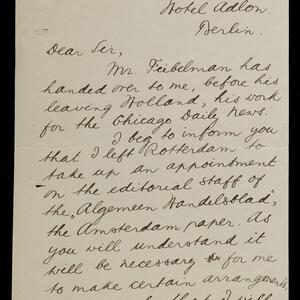 Hotel Adlon.
Berlin.
Dear Sir,
Mr. Feibelman has
handed over to me, before his
leaving Holland, his work
for the Chicago Daily News.
I beg to inform you
that I left Rotterdam to
take up an appointment
on the editorial staff of
the "Algemeen Handelsblad",
the Amsterdam paper. As
you will understand it
will be necessary for me
to make certain arrangements